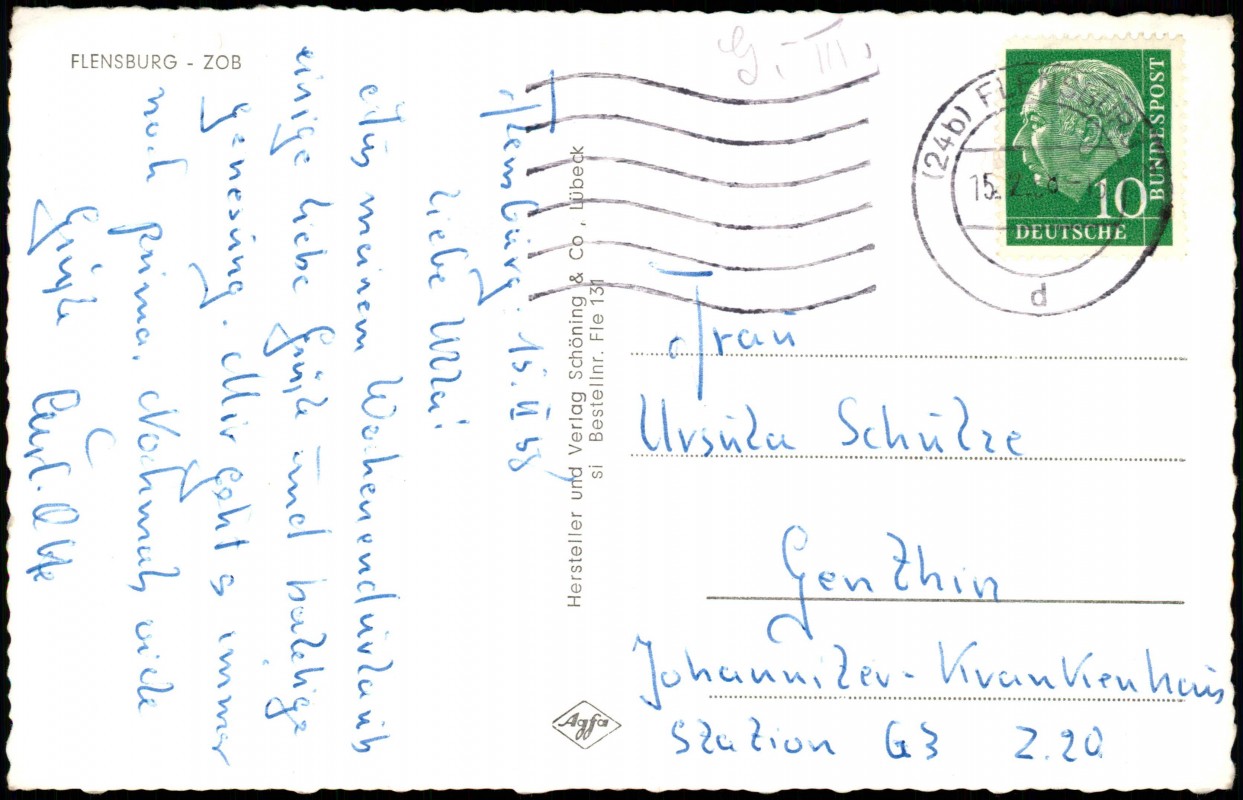 FLENSBURG - ZOB
G. III.
Flensburg. 15. II 58
Liebe Ulla!
Aus meinem Wochenendurlaub
einige liebe Grüße und baldige
Genesung. Mir geht's immer
noch prima. Nochmals viele
Grüße
Hersteller und Verlag Schöning & Co, Lübeck
si Bestellnr. Fle 131
Agfa
(24b) FLENSBURG
15.2.
d
10
DEUTSCHE
BUNDESPOST
Frau
Ursula Schulze
Genthin
Johanniter-Krankenhaus
Station G3 Z.20